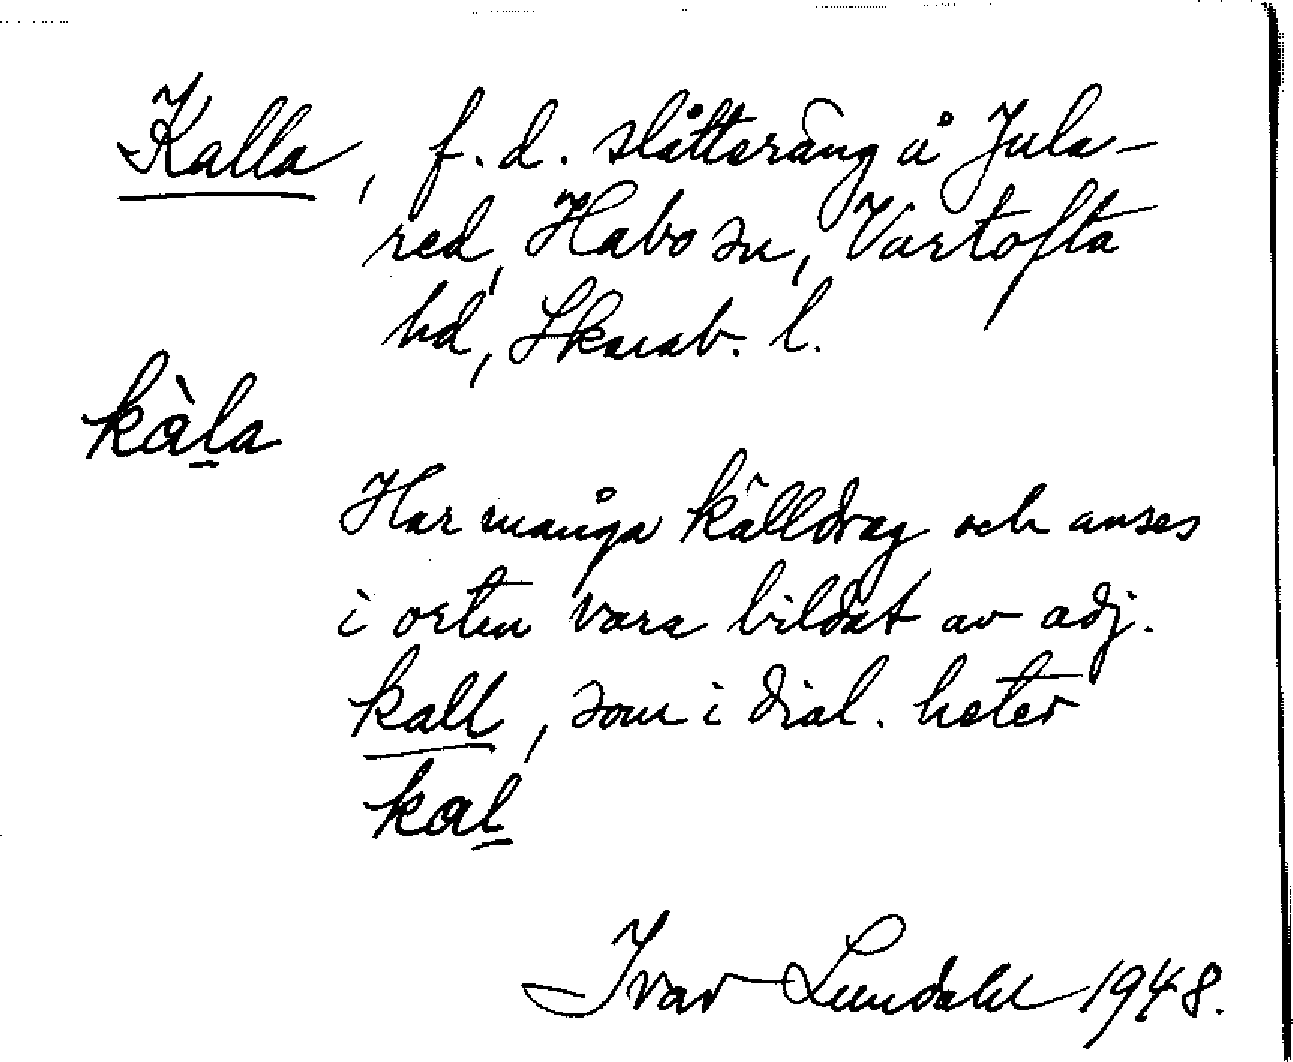 Kalla, f. d. slåtteräng å Jula-
red, Habo sn, Vartofta
hd, Skarab. l.
kàl̲a
Har många källdrag och anses
i orten vara bildat av adj.
kall, som i dial. heter
kal̲
Ivar Lundahl 1948.